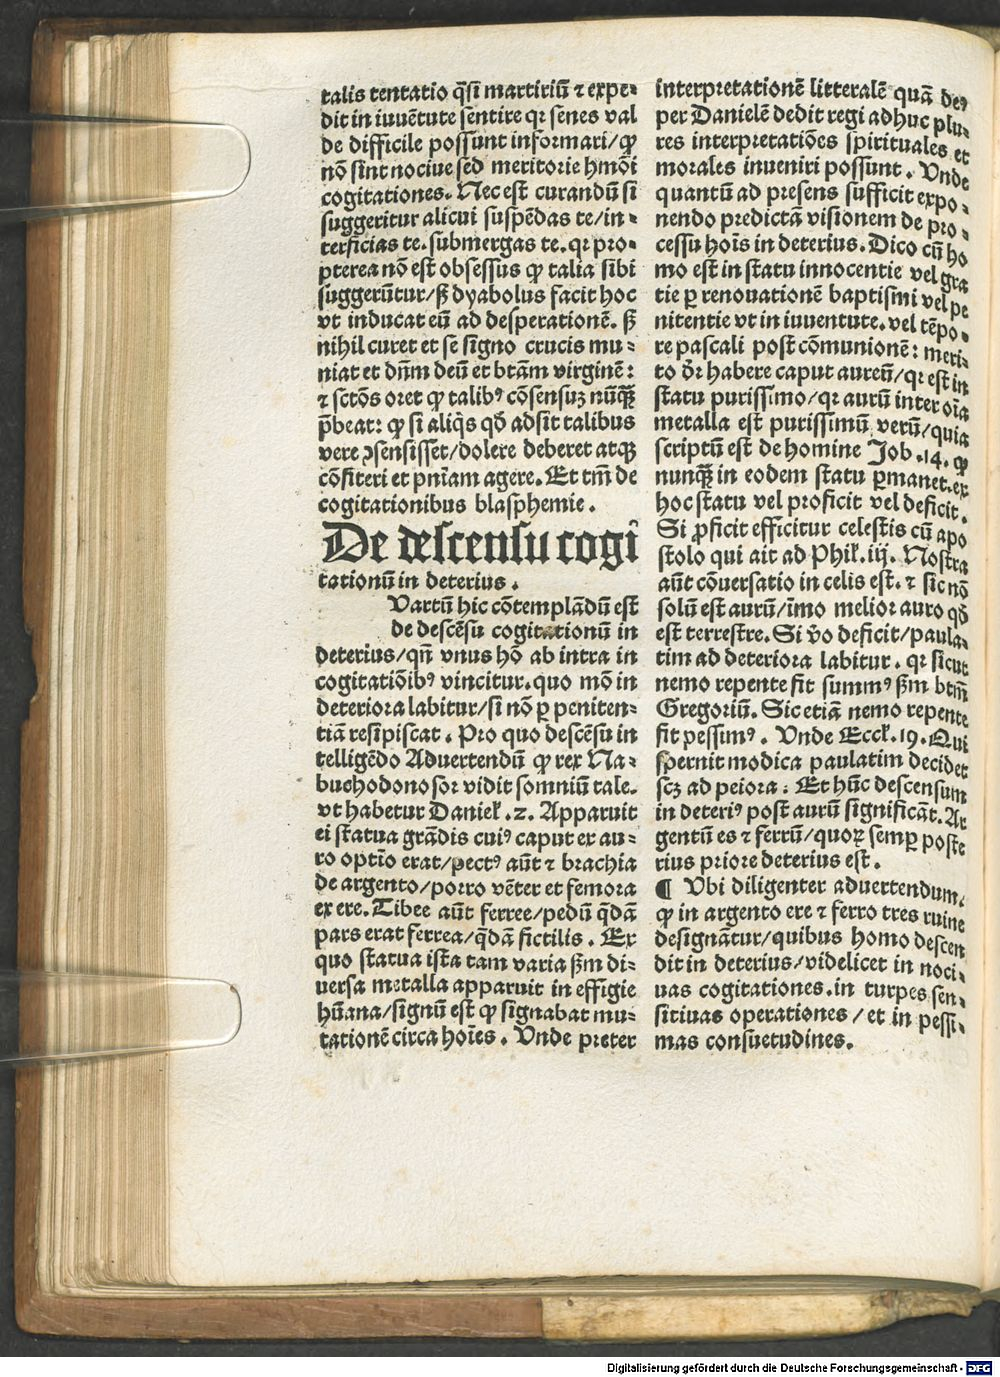 talis tentatio q̄si martiriū ⁊ expe-
dit in iuuētute sentire qꝛ senes val
de difficile possunt informari/ꝙ
nō sint nociue sed meritorie hmōi
cogitationes. Nec est curandū si
suggeritur alicui suspēdas te/in-
terficias te. submergas te. qꝛ pro-
pterea nō est obsessus ꝙ talia sibi
suggerūtur/sꝫ dyabolus facit hoc
vt inducat eū ad desperationē. sꝫ
nihil curet et se signo crucis mu-
niat et dn̄m deū et btām virginē:
⁊ sctōs oret ꝙ talibꝰ cōsensuꝫ nūꝙ̄
p̄beat: ꝙ si aliq̄s qd̄ adsit talibus
vere ꝯsensisset/dolere deberet atqꝫ
cōfiteri et pn̄iam agere. Et tm̄ de
cogitationibus blasphemie.
De descensu cogi
tationū in deterius.
Uartū hic cōtemplādū est
de descēsu cogitationū in
deterius/qn̄ vnus hō ab intra in
cogitatiōibꝰ vincitur. quo mō in
deteriora labitur/si nō ꝑ peniten-
tiā resipiscat. Pro quo descēsu in
telligēdo Aduertendū ꝙ rex Na-
buchodonosor vidit somniū tale.
vt habetur Daniel̄. 2. Apparuit
ei statua grādis cuiꝰ caput ex au-
ro optīo erat/pectꝰ aūt ⁊ brachia
de argento/porro vēter et femora
ex ere. Tibee aūt ferree/pedū q̄dā
pars erat ferrea/q̄dā fictilis. Ex
quo statua ista tam varia ẜm di-
uersa metalla apparuit in effigie
hūana/signū est ꝙ signabat mu-
tationē circa hoīes. Unde preter
interpretationē litteralē quā de-
per Danielē dedit regi adhuc plu-
res interpretatiōes spirituales et
morales inueniri possunt. Unde
quantū ad presens sufficit expo-
nendo predictā visionem de pro-
cessu hoīs in deterius. Dico cū ho
mo est in statu innocentie vel gra
tie ꝑ renouationē baptismi vel pe
nitentie vt in iuuentute. vel tēpo-
re pascali post cōmunionē: meri-
to dꝛ̄ habere caput aureū/qꝛ est in
statu purissimo/qꝛ aurū inter oīa
metalla est purissimū verū/quia
scriptū est de homine Job .14. ꝙ
nunꝙ̄ in eodem statu ꝑmanet. ex
hoc statu vel proficit vel deficit.
Si ꝓficit efficitur celestis cū apo
stolo qui ait ad Phil̄. iij. Nostra
aūt cōuersatio in celis est. ⁊ sic nō
solū est aurū/īmo melior auro qd̄
est terrestre. Si v̄o deficit/paula-
tim ad deteriora labitur. qꝛ sicut
nemo repente fit summꝰ ẜm btm̄
Gregoriū. Sic etiā nemo repente
fit pessimꝰ. Unde Eccl̄. 19. Qui
spernit modica paulatim decidet
scꝫ ad peiora: Et hūc descensum
in deteriꝰ post aurū significāt. Ar
gentū es ⁊ ferrū/quoꝝ semꝑ poste
rius priore deterius est.
¶ Ubi diligenter aduertendum.
ꝙ in argento ere ⁊ ferro tres ruine
designātur/quibus homo descen
dit in deterius/videlicet in noci-
uas cogitationes. in turpes sen-
sitiuas operationes/et in pessi-
mas consuetudines.
Digitalisierung gefördert durch die Deutsche Forschungsgemeinschaft - DFG